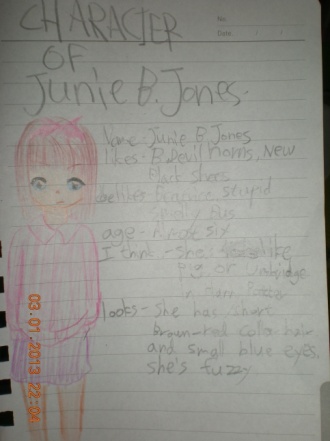 CHARACTER
No.
Date / /
OF
Junie B. Jones.
Name - Junie B. Jones
likes - B, Devil horns, New
Black shoes
Beatrice, stupid
Smelly Bus
age - six
I think - She like
pig or Umbridge
in Harry Potter
looks - She has short
Brown-red color hair
and small blue eyes.
she's fuzzy
03.01.2013 22: